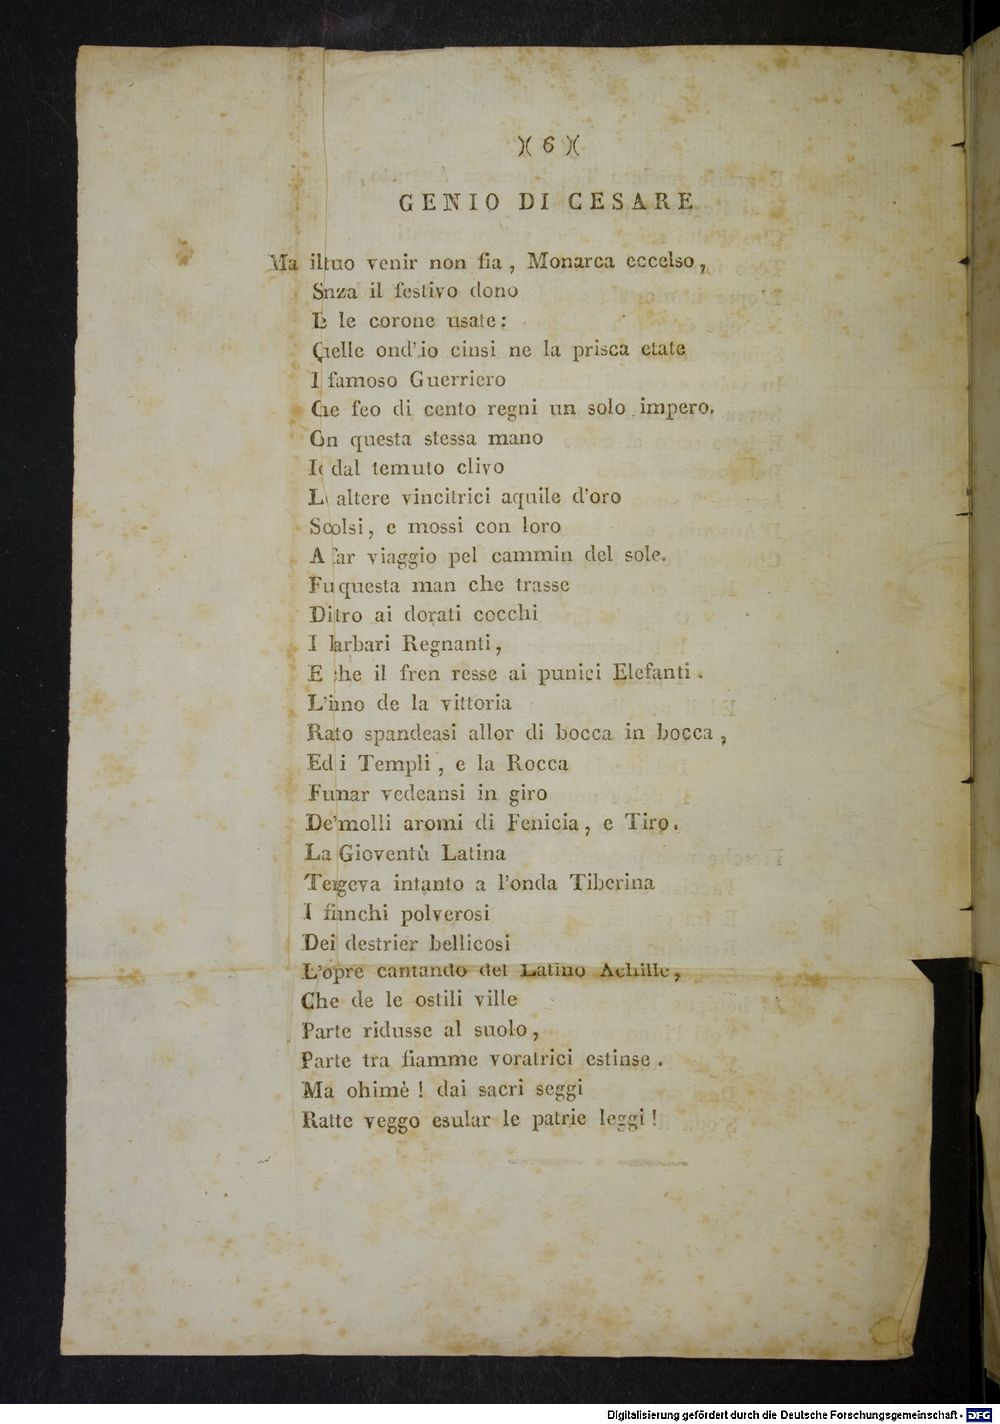 )( 6 )(
GENIO DI CESARE
Ma il tuo venir non fia, Monarca eccelso,
Snza il festivo dono
E le corone usate:
Qelle ond'io cinsi ne la prisca etate
I famoso Guerriero
Che feo di cento regni un solo impero.
Con questa stessa mano
Io dal temuto clivo
Le altere vincitrici aquile d'oro
Sciolsi, e mossi con loro
A far viaggio pel cammin del sole.
Fu questa man che trasse
Dietro ai dorati cocchi
I barbari Regnanti,
E che il fren resse ai punici Elefanti.
L'inno de la vittoria
Rato spandeasi allor di bocca in bocca,
Ed i Templi, e la Rocca
Fumar vedeansi in giro
De'molli aromi di Fenicia, e Tiro.
La Gioventù Latina
Tergeva intanto a l'onda Tiberina
I fianchi polverosi
Dei destrier bellicosi
L'opre cantando del Latino Achille,
Che de le ostili ville
Parte ridusse al suolo,
Parte tra fiamme voratrici estinse.
Ma ohimè! dai sacri seggi
Ratte veggo esular le patrie leggi!
Digitalisierung gefördert durch die Deutsche Forschungsgemeinschaft - DFG